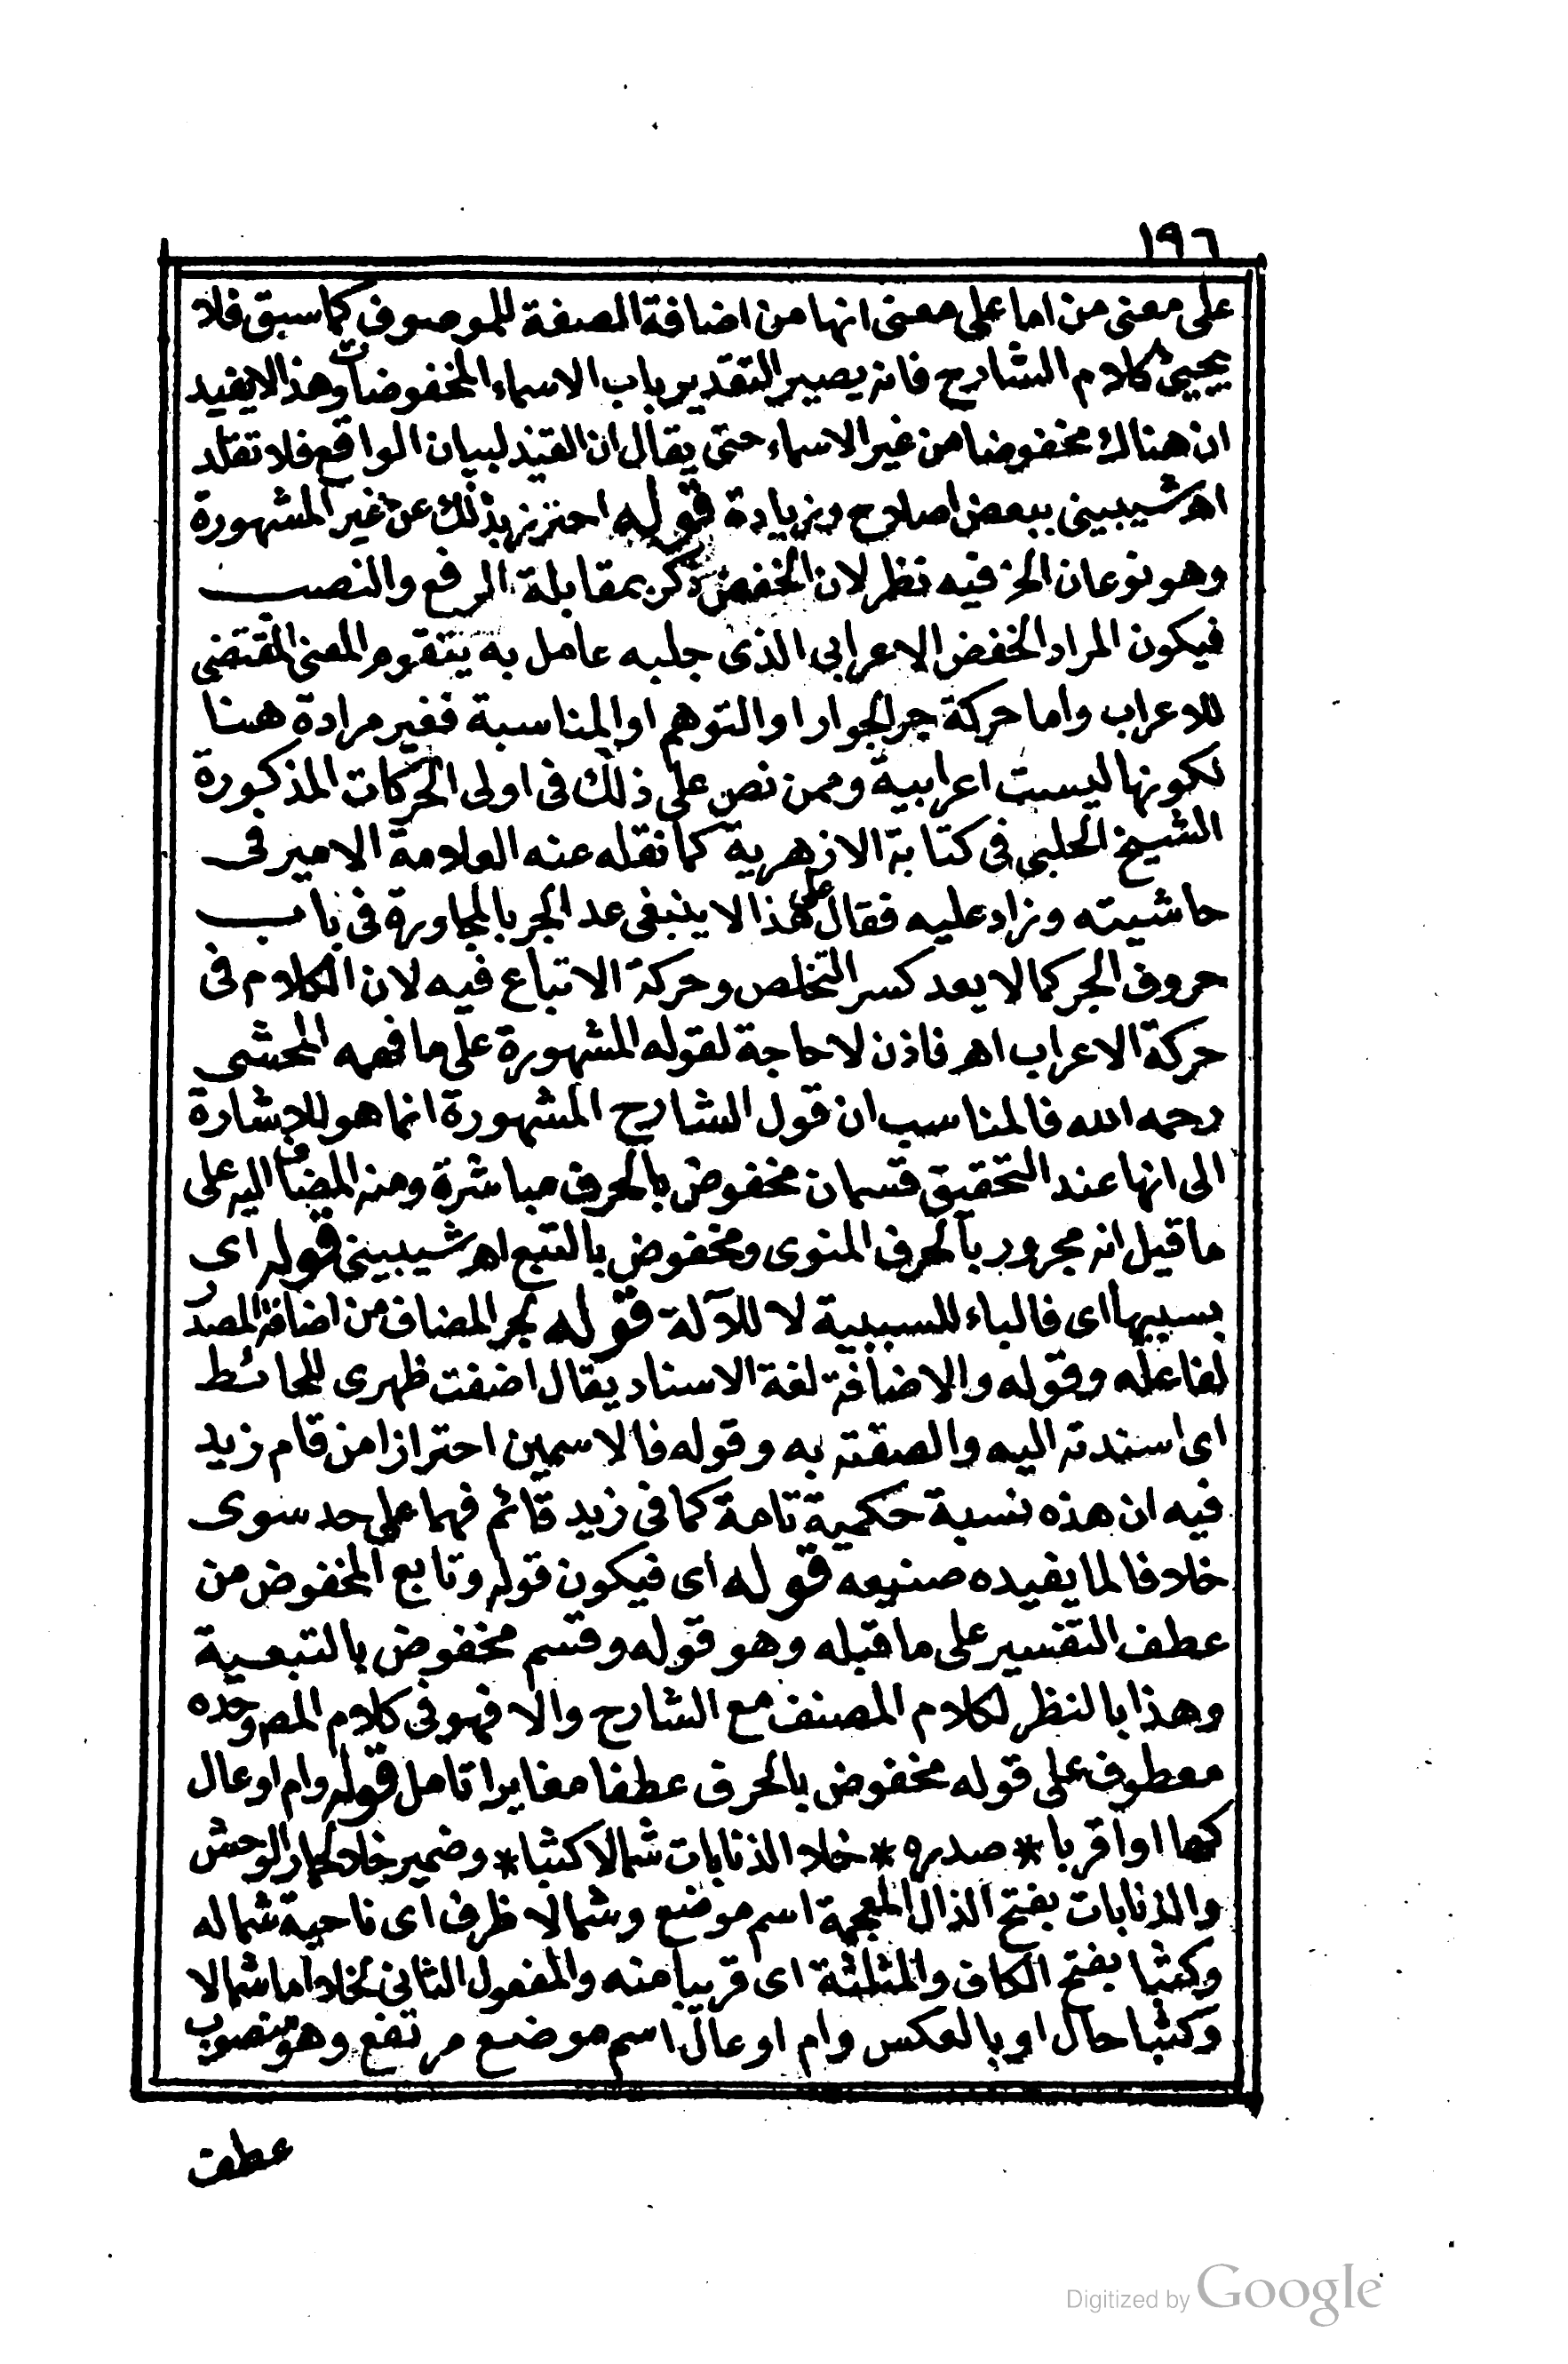 ١٩٦
على معنى من اما على معنى انها من اضافة الصفة للموصوف كما سبق فلا
يجيئ كلام الشارح فانه يصير التقدير باب الاسماء المخفوضات وهذا لا يفيد
ان هناك مخفوضا من غير الاسماء حتى يقال ان القيد لبيان الواقع فلا تقلد
اهـ شيبينى ببعض اصلاح وزيادة قوله احترز بذلك عن غير المشهورة
وهو نوعان الخ فيه نظر لان الخفض ذكر بمقابلة الرفع والنصب
فيكون المراد الخفض الاعرابى الذى جلبه عامل به يتقوم المعنى المقتضى
للاعراب واما حركة جر الجوار او التوهم او المناسبة فغير مرادة هنا
لكونها ليست اعرابية وممن نص على ذلك فى اولى الحركات المذكورة
الشيخ الحلبى فى كتابة الازهرية كما نقله عنه العلامة الامير فى
حاشيته وزاد عليه فقال على هذا لا ينبغى عد الجر بالمجاورة فى باب
حروف الجر كما لا يعد كسر التخلص وحركة الاتباع فيه لان الكلام فى
حركة الاعراب اهـ فاذن لا حاجة لقوله المشهورة على ما فهمه المحشى
رحمه الله فالمناسب ان قول الشارح المشهورة انما هو للاشارة
الى انها عند التحقيق قسمان مخفوض بالحرف مباشرة ومنه المضاف اليه على
ما قيل انه مجرور بالحرف المنوى ومخفوض بالتبع اهـ شيبينى قوله اى
بسببها اى فالباء للسببية لا للآلة قوله بجر المضاف من اضافة المصدر
لفاعله وقوله والاضافة لغة الاسناد يقال اضفت ظهرى للحائط
اى اسندته اليه والصقته به وقوله فالاسمين احترازا من قام زيد
فيه ان هذه نسبة حكمية تامة كما فى زيد قائم فهما على حد سوى
خلافا لما يفيده صنيعه قوله اى فيكون قوله وتابع المخفوض من
عطف التفسير على ما قبله وهو قوله وقسم مخفوض بالتبعية
وهذا بالنظر لكلام المصنف مع الشارح والا فهو فى كلام المص وحده
معطوف على قوله مخفوض بالحرف عطفا مغايرا تامل قوله وام اوعال
كها او اقربا * صدره * خلا الذنابات شمالا كثبا * وضمير خلا لحمار الوحش
والذنابات بفتح الذال المعجمة اسم موضع وشمالا ظرف اى ناحية شماله
وكثبا بفتح الكاف والمثلثة اى قريبا منه والمفعول الثانى لخلا اما شمالا
وكثبا حال او بالعكس وام اوعال اسم موضع مرتفع وهو منصوب
عطف
Digitized by Google